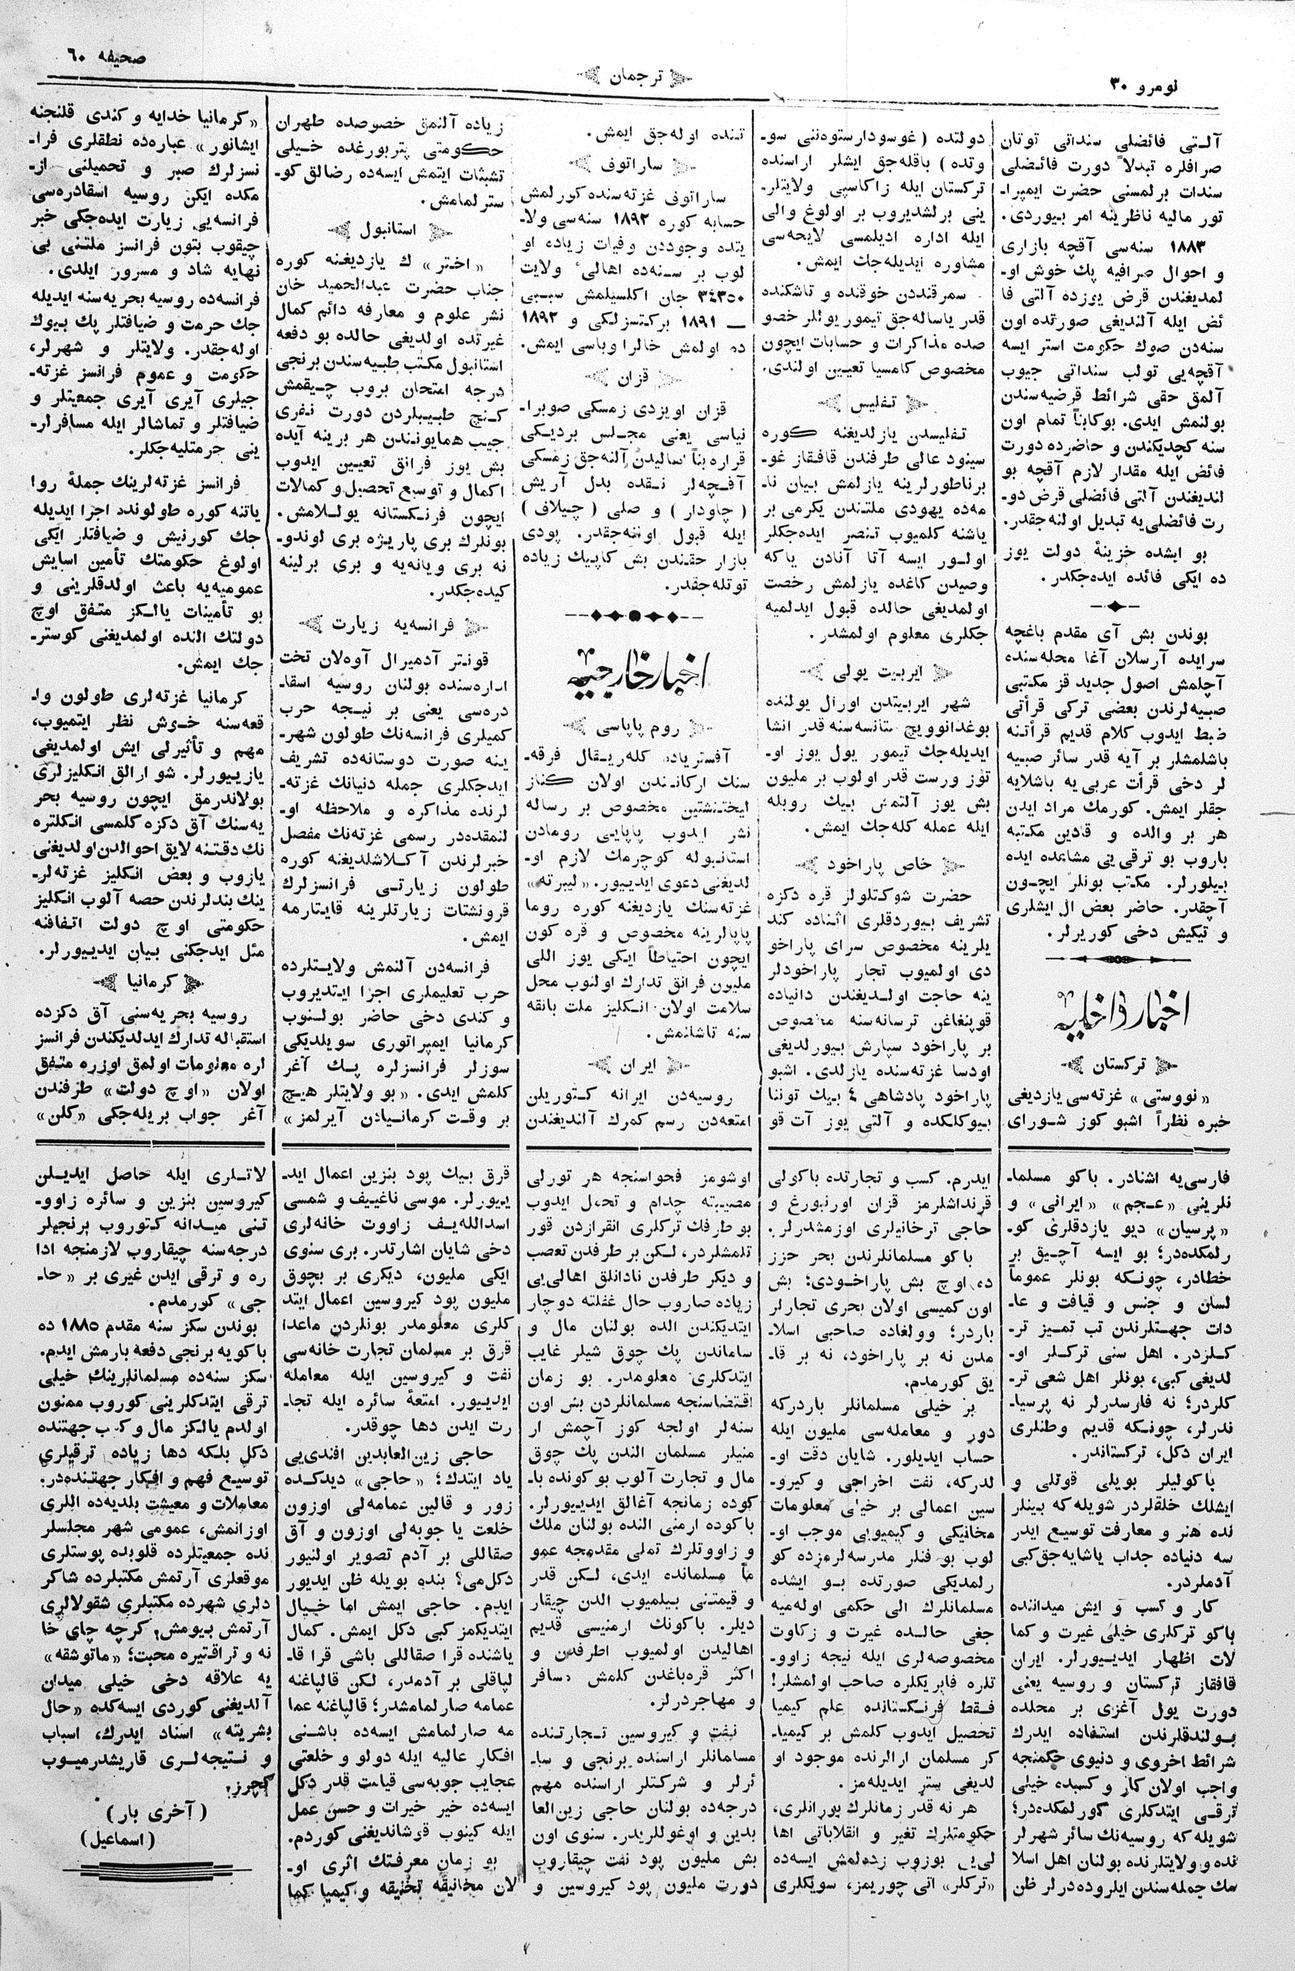 نومرو ٣٠
ترجمان
صحيفه ٦٠
آلتی فائضلی سنداتی توتان
صرافلره تبدلاً دورت فائضلی
سندات برلمسنی حضرت ایمپرا-
تور مالیه ناظرینه امر بیوردی.
١٨٨٣ سنه‌سی آقچه بازاری
و احوال صرافیه پك خوش او-
لمدیغندن قرض یوزده آلتی فا
ئض ایله آلندیغی صورتده اون
سنه‌دن صوك حكومت استر ایسه
آقچه‌یی تولب سنداتی جیوب
آلمق حقی شرائط قرضیه‌سندن
بولنمش ایدی. بوكاباً تمام اون
سنه كچدیكندن و حاضرده دورت
فائض ایله مقدار لازم آقچه بو
لندیغندن آلتی فائضلی قرض دو-
رت فائضلی‌یه تبدیل اولنه‌جقدر.
بو ایشده خزینهٔ دولت یوز
ده ایكی فائده ایده‌جكدر.
بوندن بش آی مقدم باغچه
سرایده آرسلان آغا محله‌سنده
آچلمش اصول جدید قز مكتبی
صبیه‌لرندن بعضی تركی قرأتی
ضبط ایدوب كلام قدیم قرأتنه
باشلمشلر بر آیه قدر سائر صبیه
لر دخی قرأت عربی‌یه باشلایه
جقلر ایمش. كورمك مراد ایدن
هر بر والده و قادین مكتبه
باروب بو ترقی‌یی مشاهده ایده
بیلورلر. مكتب بونلر ایچون
آچقدر. حاضر بعض ال ایشلری
و تیكیش دخی كوریرلر.
اخبار داخلیه
تركستان
«نووستی» غزته‌سی یازدیغی
خبره نظراً اشبو كوز شورای
دولتده (غوسودارستوه‌ننی سو-
وتده) باقله‌جق ایشلر اراسنده
تركستان ایله زاكاسپی ولایتلر-
ینی برلشدیروب بر اولوغ والی
ایله اداره ایدیلمسی لایحه‌سی
مشاوره ایدیله‌جك ایمش.
سمرقنددن خوقنده و تاشكنده
قدر یاساله‌جق تیمور یوللر خصو
صده مذاكرات و حسابات ایچون
مخصوص كامسیا تعیین اولندی.
تفلیس
تفلیسدن یازلدیغنه كوره
سینود عالی طرفندن قافقاز غو-
برناطورلرینه یازلمش بیان نا-
مه‌ده یهودی ملتندن یكرمی بر
یاشنه كلمیوب تنصر ایده‌جكلر
اولور ایسه آتا آنادن یا‌كه
وصیدن كاغده یازلمش رخصت
اولمدیغی حالده قبول ایدلمیه
جكلری معلوم اولمشدر.
ایربیت یولی
شهر ایربیتدن اورال یولنده
بوغدانوویچ ستانسه‌سنه قدر انشا
ایدیله‌جك تیمور یول یوز او-
توز ورست قدر اولوب بر ملیون
بش یوز آلتمش بیك روبله
ایله عمله كله‌جك ایمش.
خاص پاراخود
حضرت شوكتلولر قره دكزه
تشریف بیوردقلری اثناده كند
یلرینه مخصوص سرای پاراخو
دی اولمیوب تجار پاراخودلر
ینه حاجت اولدیغندن دانیاده
قوپنغاغن ترسانه‌سنه مخصوص
بر پاراخود سپارش بیورلدیغی
اودسا غزته‌سنده یازلدی. اشبو
پاراخود پادشاهی ٤ بیك توننا
بیوكلكده و آلتی یوز آت قو
تنده اوله‌جق ایمش.
ساراتوف
ساراتوفی غزته‌سنده كورلمش
حسابه كوره ١٨٩٢ سنه‌سی ولا-
یتده وجوددن وفیات زیاده او
لوب بر سنه‌ده اهالیٔ ولایت
٣٤٣٥٠ جان اكسیلمش سببی
— ١٨٩١ بركتسزلكی و ١٨٩٢
ده اولمش خالرا وباسی ایمش.
قزان
قزان اویزدی زمسكی صوبرا-
نیاسی یعنی مجلس بردیكی
قراره بناً سالیدن آلنه‌جق زمسكی
آقچه‌لر نقده بدل آریش
(چاودار) و صلی (چیلاف)
ایله قبول اوننه‌جقدر. پودی
بازار حقندن بش كاپیك زیاده
توتله‌جقدر.
اخبار خارجیه
روم پاپاسی
آفستریاده كله‌ریقال فرقه-
سنك اركانندن اولان كناز
لیختنشتین مخصوص بر رساله
نشر ایدوب پاپایی رومادن
استانبوله كوچرمك لازم او-
لدیغنی دعوی ایدیور. «لیبرته»
غزته‌سنك یازدیغنه كوره روما
پاپالرینه مخصوص و قره كون
ایچون احتیاطاً ایكی یوز اللی
ملیون فرانق تدارك اولنوب محل
سلامت اولان انكلیز ملت بانقه
سنه تاشانمش.
ایران
روسیه‌دن ایرانه كتوریلن
امتعه‌دن رسم كمرك آلندیغندن
زیاده آلنمق خصوصده طهران
حكومتی پتربورغده خیلی
تشبثات ایتمش ایسه‌ده رضالق كو-
سترلمامش.
استانبول
«اختر» ك یازدیغنه كوره
جناب حضرت عبدالحمید خان
نشر علوم و معارفه دائم كمال
غیرتده اولدیغی حالده بو دفعه
استانبول مكتب طبیه‌سندن برنجی
درجه امتحان بروب چیقمش
كنج طبیبلردن دورت نفری
جیب همایوندن هر برینه آیده
بش یوز فرانق تعیین ایدوب
اكمال و توسیع تحصیل و كمالات
ایچون فرنكستانه یوللامش.
بونلرك بری پاریژه بری لوندو-
نه بری ویانه‌یه و بری برلینه
كیده‌جكدر.
فرانسه‌یه زیارت
قونتر آدمیرال آوه‌لان تخت
اداره‌سنده بولنان روسیه اسقا-
دره‌سی یعنی بر نیجه حرب
كمیلری فرانسه‌نك طولون شهر-
ینه صورت دوستانه‌ده تشریف
ایدجكلری جمله دنیانك غزته-
لرنده مذاكره و ملاحظه او-
لنمقده‌در رسمی غزته‌نك مفصل
خبرلرندن آكلاشلدیغنه كوره
طولون زیارتی فرانسزلرك
قرونشتات زیارتلرینه قایتارمه
ایمش.
فرانسه‌دن آلنمش ولایتلرده
حرب تعلیملری اجرا ایتدیروب
و كندی دخی حاضر بولنوب
كرمانیا ایمپراتوری سویلدیكی
سوزلر فرانسزلره پك آغر
كلمش ایدی. «بو ولایتلر هیچ
بر وقت كرمانیادن آیرلمز»
«كرمانیا خدایه و كندی قلنجنه
ایشانور» عباره‌ده نطقلری فرا-
نسزلرك صبر و تحمیلنی از-
مكده ایكن روسیه اسقادره‌سی
فرانسه‌یی زیارت ایده‌جكی خبر
چیقوب بتون فرانسز ملتنی بی
نهایه شاد و مسرور ایلدی.
فرانسه‌ده روسیه بحریه‌سنه ایدیله
جك حرمت و ضیافتلر پك بیوك
اوله‌جقدر. ولایتلر و شهرلر،
حكومت و عموم فرانسز غزته-
جیلری آیری آیری جمعیتلر و
ضیافتلر و تماشالر ایله مسافرلر-
ینی حرمتلیه‌جكلر.
فرانسز غزته‌لرینك جملهٔ روا
یاتنه كوره طولونده اجزا ایدیله
جك كورنیش و ضیافتلر ایكی
اولوغ حكومتك تأمین اسایش
عمومیه‌یه باعث اولدقلرینی و
بو تأمینات یالكز متفق اوچ
دولتك النده اولمدیغنی كوستر-
جك ایمش.
كرمانیا غزته‌لری طولون وا-
قعه‌سنه خوش نظر ایتمیوب،
مهم و تأثیرلی ایش اولمدیغی
یازیورلر. شو ارالق انكلیزلری
بولاندرمق ایچون روسیه بحر
یه‌سنك آق دكزه كلمسی انكلتره
نك دقتنه لایق احوالدن اولدیغنی
یازوب و بعض انكلیز غزته‌لر-
ینك بندلرندن حصه آلوب انكلیز
حكومتی اوچ دولت اتفاقنه
مئل ایدجكنی بیان ایدیورلر.
كرمانیا
روسیه بحریه‌سنی آق دكزده
استقباله تدارك ایدلدیكندن فرانسز
لره معلومات اولمق اوزره متفق
اولان «اوچ دولت» طرفندن
آغر جواب بریله‌جكی «كلن»
فارسی‌یه اشنادر. باكو مسلما-
نلرینی «عجم» «ایرانی» و
«پرسیان» دیو یازدقلری كو-
رلمكده‌در؛ بو ایسه آچیق بر
خطادر، چونكه بونلر عموماً
لسان و جنس و قیافت و عا-
دات جهتلرندن تب تمیز تر-
كلردر. اهل سنی تركلر او-
لدیغی كبی، بونلر اهل شعی تر-
كلردر؛ نه فارسدرلر نه پرسیا-
ندرلر، چونكه قدیم وطنلری
ایران دكل، تركستاندر.
باكولیلر بویلی قوتلی و
ایشلك خلقلردر شویله‌كه بینلر
نده هنر و معارفت توسیع ایدر
سه دنیاده جداب یاشایه‌جق كبی
آدملردر.
كار و كسب و ایش میداننده
باكو تركلری خیلی غیرت و كما
لات اظهار ایدیورلر. ایران
قافقاز تركستان و روسیه یعنی
دورت یول آغزی بر محلده
بولندقلرندن استفاده ایدرك
شرائط اخروی و دنیوی حكمنجه
واجب اولان كار و كسبده خیلی
ترقی ایتدكلری كورلمكده‌در؛
شویله‌كه روسیه‌نك سائر شهرلر
نده و ولایتلرنده بولنان اهل اسلا
مك جمله‌سندن ایلروده‌درلر ظن
ایدرم. كسب و تجارتده باكولی
قرنداشلرمز قزان اورنبورغ و
حاجی ترخانیلری اوزمشدرلر.
باكو مسلمانلرندن بحر حزز
ده، اوچ بش پاراخودی؛ بش
اون كمیسی اولان بحری تجارلر
باردر؛ وولغاده صاحبی اسلا-
مدن نه بر پاراخود، نه بر قا-
یق كورمدم.
بر خیلی مسلمانلر باردركه
دور و معامله‌سی ملیون ایله
حساب ایدیلور. شایان دقت او
لدركه، نفت اخراجی و كیرو-
سین اعمالی بر خیلی معلومات
مخانیكی و كیمیویی موجب او-
لوب بو فنلر مدرسه‌لرمزده كو
رلمدیكی صورتده بو ایشده
مسلمانلرك الی حكمی اوله‌میه
جغی حالده غیرت و زكاوت
مخصوصه‌لری ایله نیجه زاوو-
تلره فابریكلره صاحب اولمشلر!
فقط فرنكستانده علم كیمیا
تحصیل ایدوب كلمش بر كیمیا-
كر مسلمان ارالرنده موجود او
لدیغی ستر ایدیله‌مز.
هر نه قدر زمانلرك بورانلری،
حكومتلرك تغیر و انقلاباتی اها
لی‌یی بوزوب زده‌لمش ایسه‌ده
«تركلر» اتی چوریمز، سویكلری
اوشومز فحواسنجه هر تورلی
مصیبته چدام و تحمل ایدوب
بو طرفك تركلری انقرازدن قور
تلمشلردر، لكن بر طرفدن تعصب
و دیگر طرفدن نادانلق اهالی‌یی
زیاده صاروب حال غفلته دوچار
ایتدیكندن الده بولنان مال و
ساماندن پك چوق شیلر غایب
ایتدكلری معلومدر. بو زمان
اقتضاسنجه مسلمانلردن بش اون
سنه‌لر اولجه كوز آچمش ار
منیلر مسلمان الندن پك چوق
مال و تجارت آلوب بو كونده با-
كوده زمانجه آغالق ایدیورلر.
باكوده ارمنی النده بولنان ملك
و زاووتلرك تملی مقدمجه عمو
ماً مسلمانده ایدی، لكن قدر
و قیمتنی بیلمیوب الدن چیقار
دیلر. باكونك ارمنیسی قدیم
اهالیدن اولمیوب اطرفدن و
اكثر قره‌باغدن كلمش مسافر
و مهاجردرلر.
نفت و كیروسین تجارتنده
مسلمانلر اراسنده برنجی و سا-
ئرلر و شركتلر اراسنده مهم
درجه‌ده بولنان حاجی زین‌العا
بدین و اوغوللریدر. سنوی اون
بش ملیون پود نفت چیقاروب
دورت ملیون پود كیروسین و
قرق بیك پود بنزین اعمال اید-
ییورلر. موسی ناغییف و شمسی
اسدالله‌یف زاووت خانه‌لری
دخی شایان اشارتدر. بری سنوی
ایكی ملیون، دیكری بر بچوق
ملیون پود كیروسین اعمال ایتد
كلری معلومدر بونلردن ماعدا
قرق بر مسلمان تجارت خانه‌سی
نفت و كیروسین ایله معامله
ایدییور. امتعهٔ سائره ایله تجا-
رت ایدن دها چوقدر.
حاجی زین‌العابدین افندی‌یی
یاد ایتدك؛ «حاجی» دیدكده
زور و قالین عمامه‌لی اوزون
خلعت یا جوبه‌لی اوزون و آق
صقاللی بر آدم تصویر اولنیور
دكل‌می؟ بنده بویله ظن ایدیور
ایدم. حاجی ایمش اما خیال
ایتدیكمز كبی دكل ایمش. كمال
یاشنده قرا صقاللی باشی قرا قا-
لپاقلی بر آدمدر، لكن قالپاغنه
عمامه صارلمامشدر؛ قالپاغنه عما
مه صارلمامش ایسه‌ده باشنی
افكار عالیه ایله دولو و خلعتی
عجایب جوبه‌سی قیامت قدر دكل
ایسه‌ده خیر خیرات و حسن عمل
ایله كینوب قوشاندیغنی كوردم.
بو زمان معرفتك اثری او-
لان مخانیقه تخنیقه و كیمیا كما
لاتلری ایله حاصل ایدیلن
كیروسین بنزین و سائره زاوو-
تنی میدانه كتوروب برنجیلر
درجه‌سنه چیقاروب لازمنجه ادا
ره و ترقی ایدن غیری بر «حا-
جی» كورمدم.
بوندن سكز سنه مقدم ١٨٨٥ ده
باكویه برنجی دفعه بارمش ایدم.
سكز سنه‌ده مسلمانلرینك خیلی
ترقی ایتدكلرینی كوروب ممنون
اولدم یالكز مال و كسب جهتنده
دكل بلكه دها زیاده ترقیلری
توسیع فهم و افكار جهتنده‌در:
معاملات و معیشت بلدیه‌ده اللری
اوزانمش، عمومی شهر مجلسلر
نده جمعیتلرده قلوبده پوستلری
موقعلری آرتمش مكتبلرده شاكر
دلری شهرده مكتبلری شقولالری
آرتمش بیومش، كرچه چای خا
نه و تراقتیره محبت؛ «ماتوشقه»
یه علاقه دخی خیلی میدان
آلدیغنی كوردی ایسه‌كده «حال
بشریته» اسناد ایدرك، اسباب
و نتیجه‌لری قاریشدرمیوب
كچرز.
(آخری بار)
(اسماعیل)